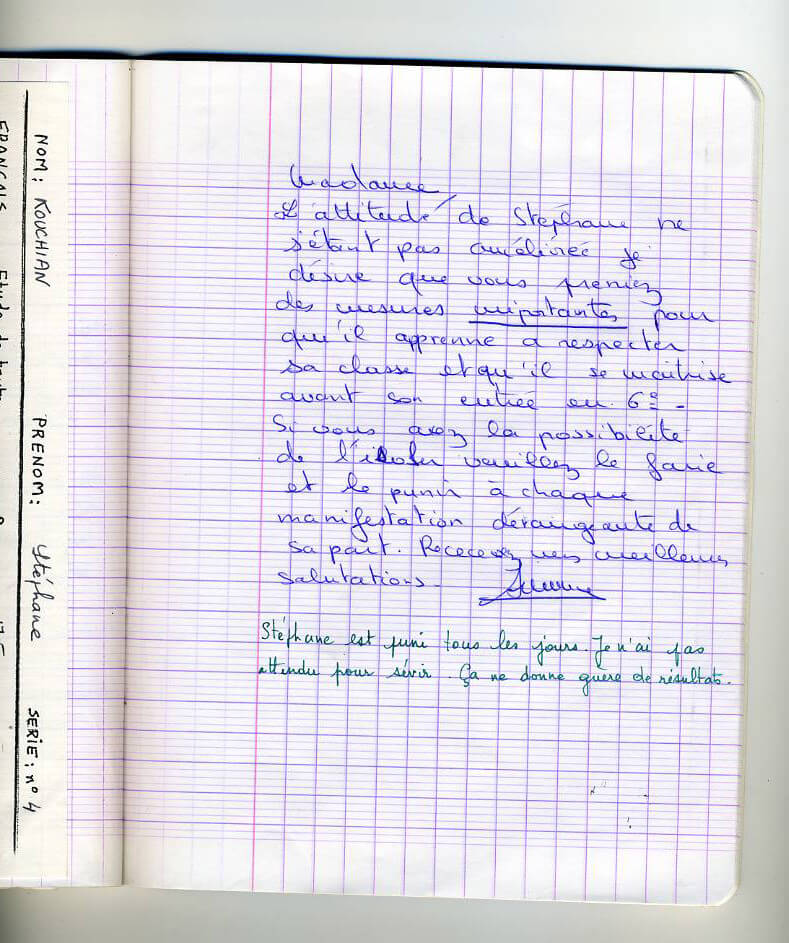 NOM: KOUCHIAN PRENOM: Stéphane SERIE: n° 4
FRANCAIS Etude de
Madame
L'attitude de Stéphane ne
s'étant pas améliorée je
désire que vous preniez
des mesures importantes pour
qu'il apprenne a respecter
sa classe et qu'il se maitrise
avant son entrée en 6e -
Si vous avez la possibilité
de l'isoler veuillez le faire
et le punir à chaque
manifestation dérangeante de
sa part. Recevez mes meilleures
salutations -
Stéphane est puni tous les jours. Je n'ai pas
attendu pour sévir. Ça ne donne guère de résultats.